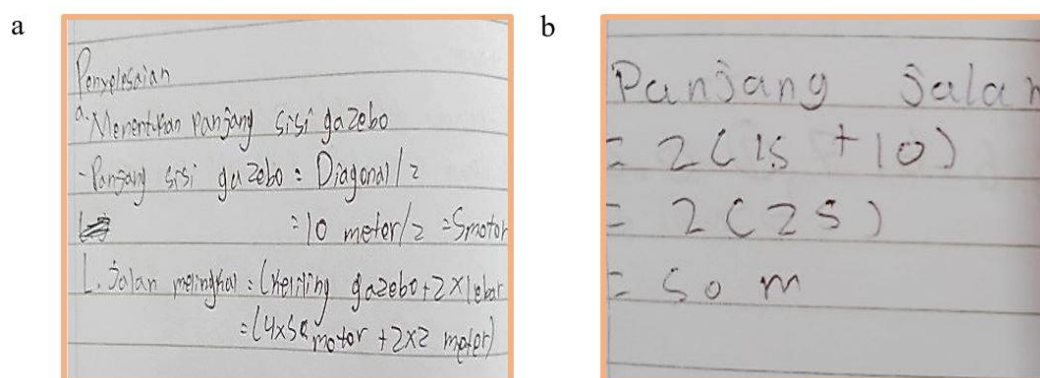 a
Penyelesaian
a. Menentukan panjang sisi gazebo
- Panjang sisi gazebo = Diagonal / 2
= 10 meter / 2 = 5 motor
L. Jalan melingkar = (Keliling gazebo + 2 x lebar
= (4x5 motor + 2x2 meter)
b
Panjang Jalan
= 2(15 + 10)
= 2(25)
= 50 m